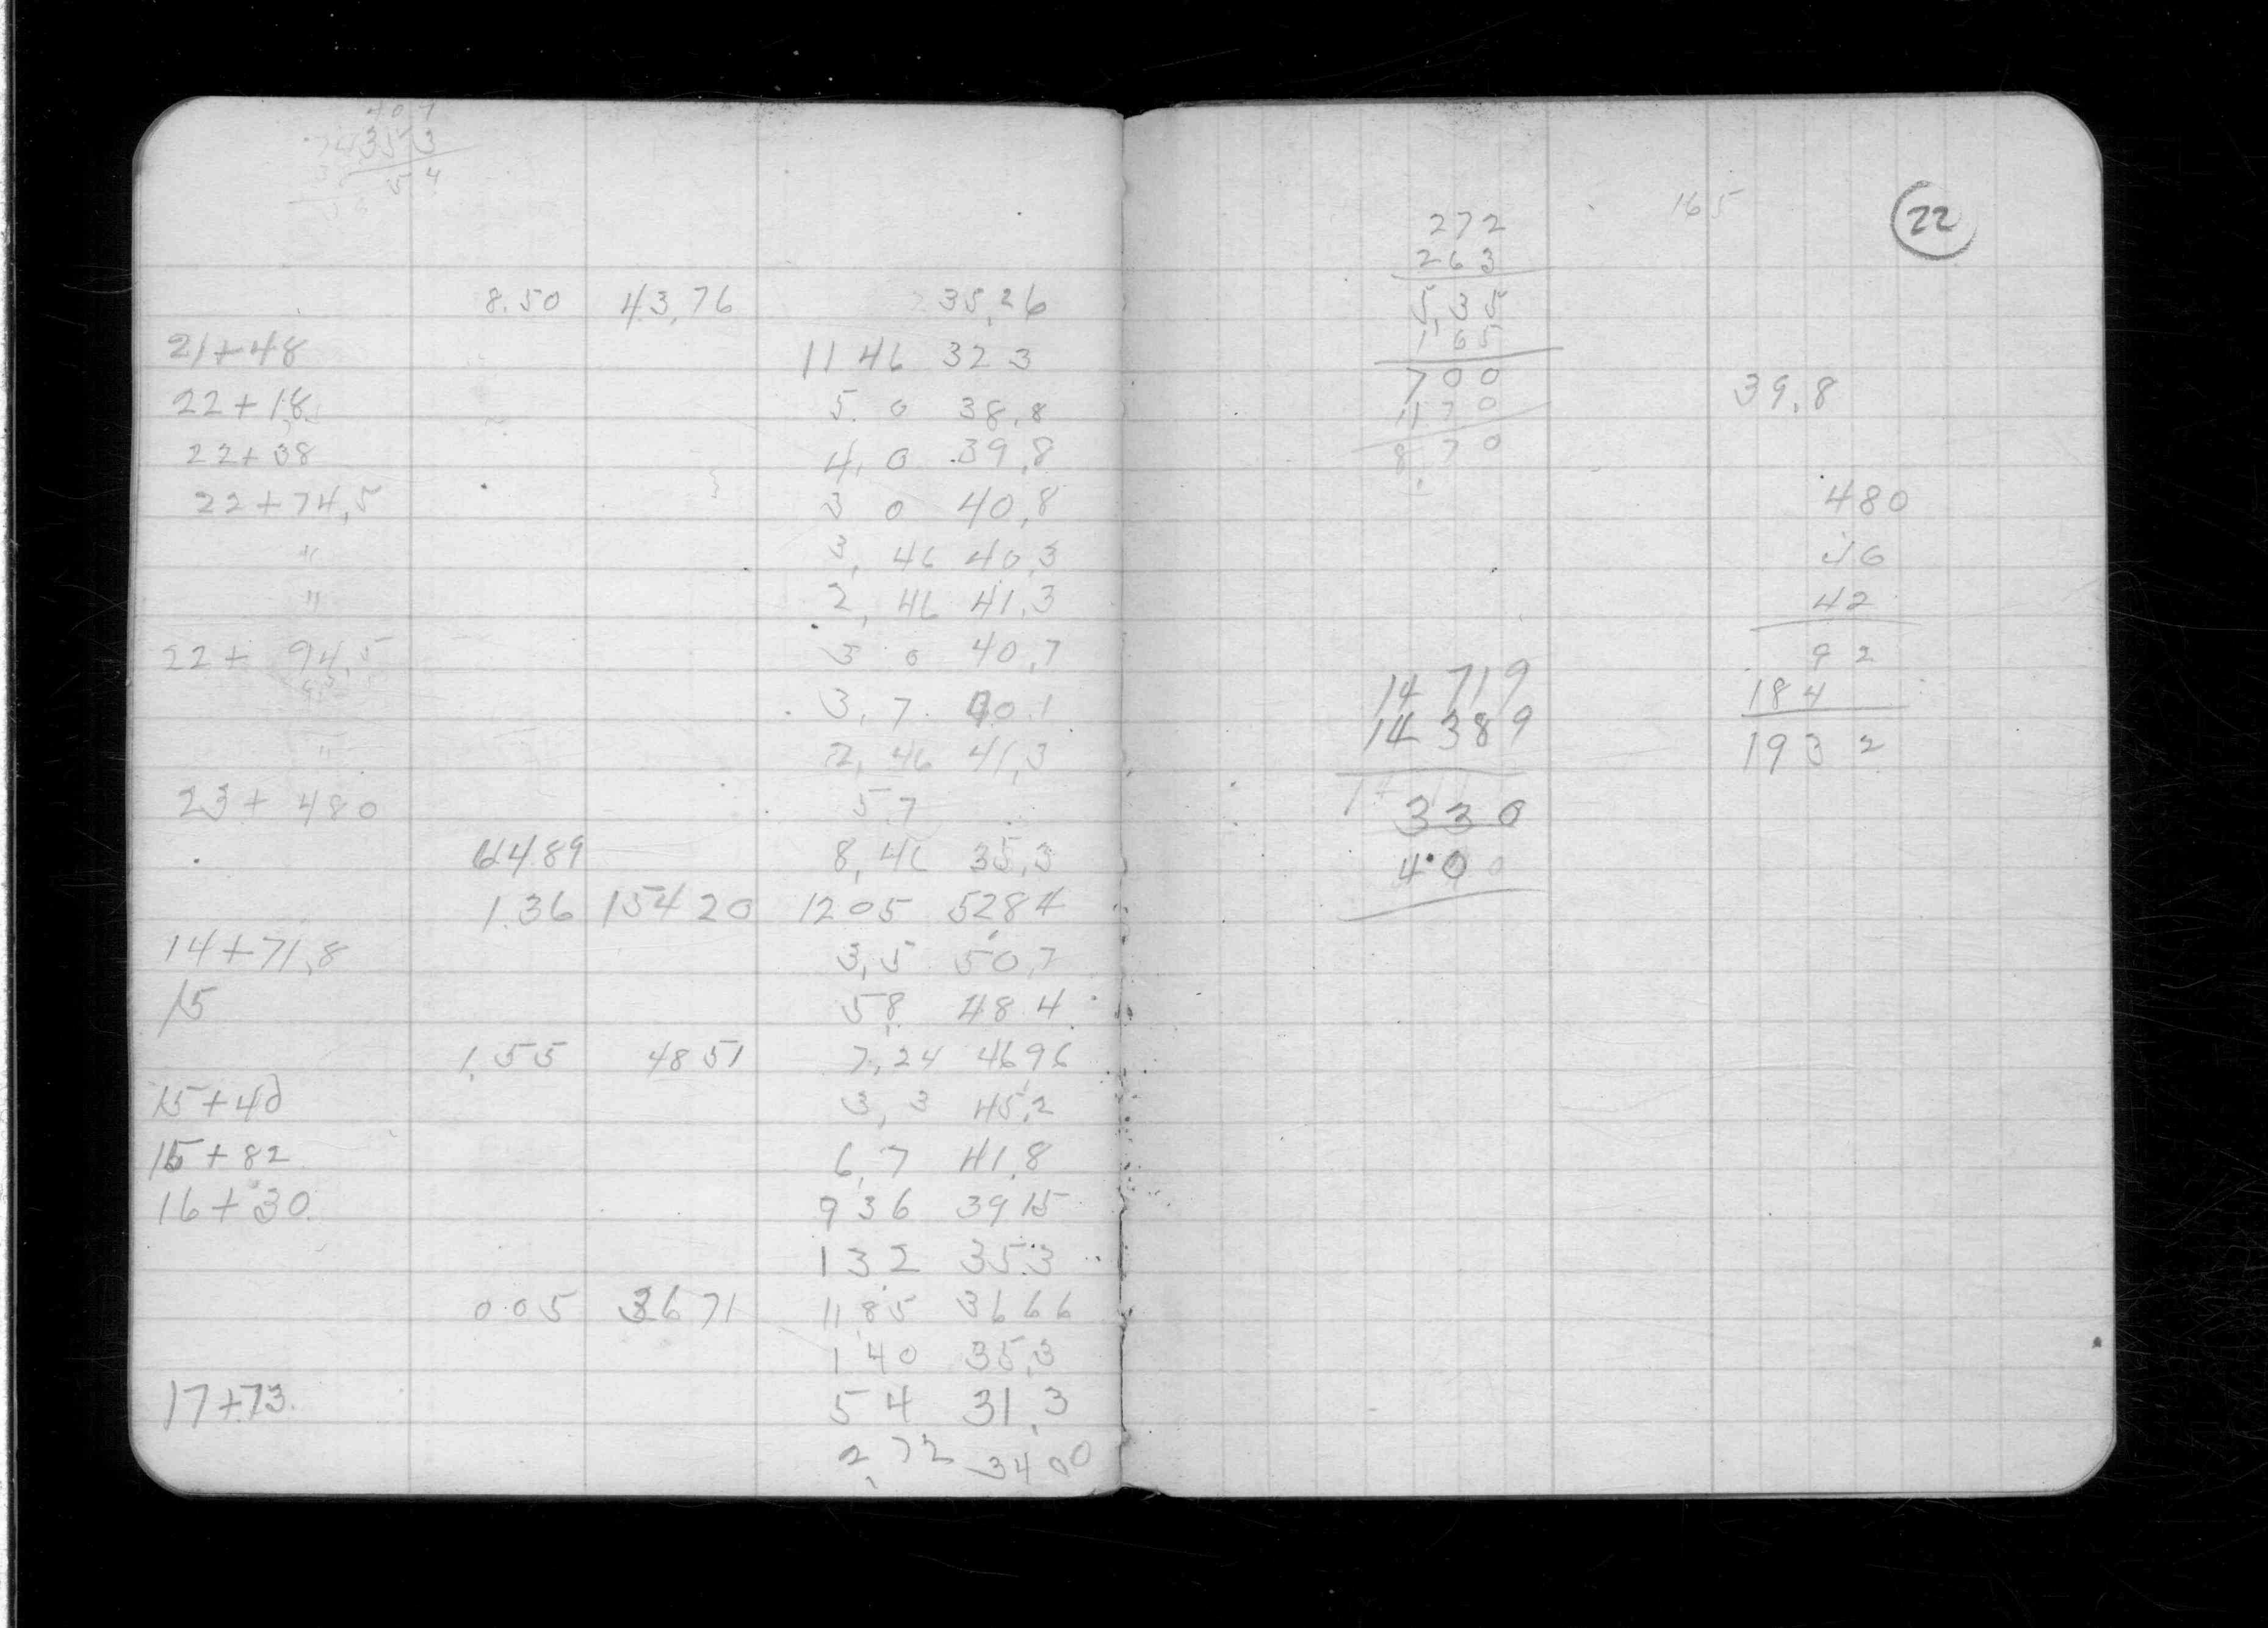 40 7
353
5 4
8.50 43,76 35,26
21+48 11 46 32 3
22+18 5. 0 38,8
22+38 4, 0 39,8
22+74,5 3 0 40,8
" 3, 46 40,3
" 2, 46 41,3
22+ 94,5 3 0 40,7
3, 7 40.1
" 2, 46 41,3
23+ 480 5 7
6489 8, 46 35,3
1.36 154 20 12 05 5284
14+71,8 3,5 50,7
15 58 48 4
1,55 48 51 7,24 4696
15+40 3, 3 45,2
15+82 6,7 41,8
16+30 9 36 39 15
1 32 35.3
0.05 36 71 11 85 36 66
1 40 35,3
17+73. 5 4 31,3
2,72 34 00
165
22
272
263
5,35
1 65
700
1170
8,70
39,8
480
46
42
92
184
1932
14 719
14 389
330
400